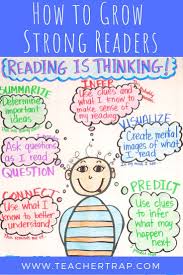 HOW TO GROW
STRONG READERS
READING IS THINKING!
SUMMARIZE
Determine
important
ideas
INFER
Use clues and
what I know to
make sense of
my reading
VISUALIZE
Create mental
images of what
I read
Ask questions
as I read
QUESTION
CONNECT
Use what I
know to better
understand
PREDICT
Use clues to
infer what
may happen
next
WWW.TEACHERTRAP.COM